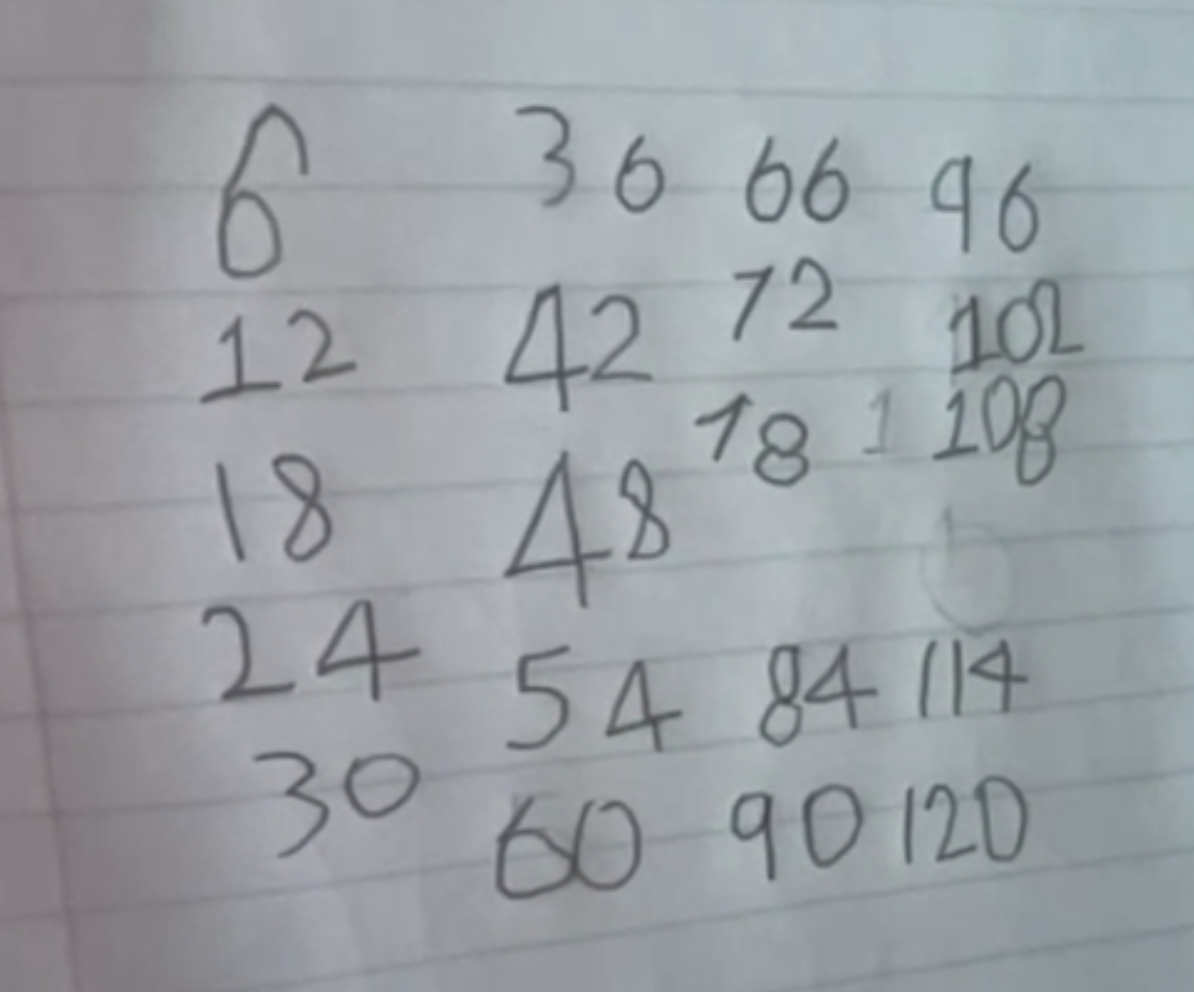 6 36 66 96
12 42 72 102
18 48 78 108
24 54 84 114
30 60 90 120